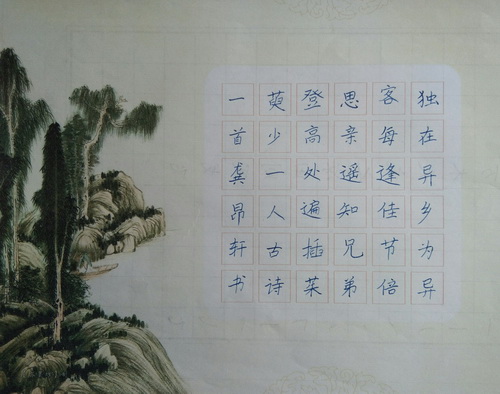 独在异乡为异
客每逢佳节倍
思亲遥知兄弟
登高处遍插茱
萸少一人古诗
一首龚昂轩书